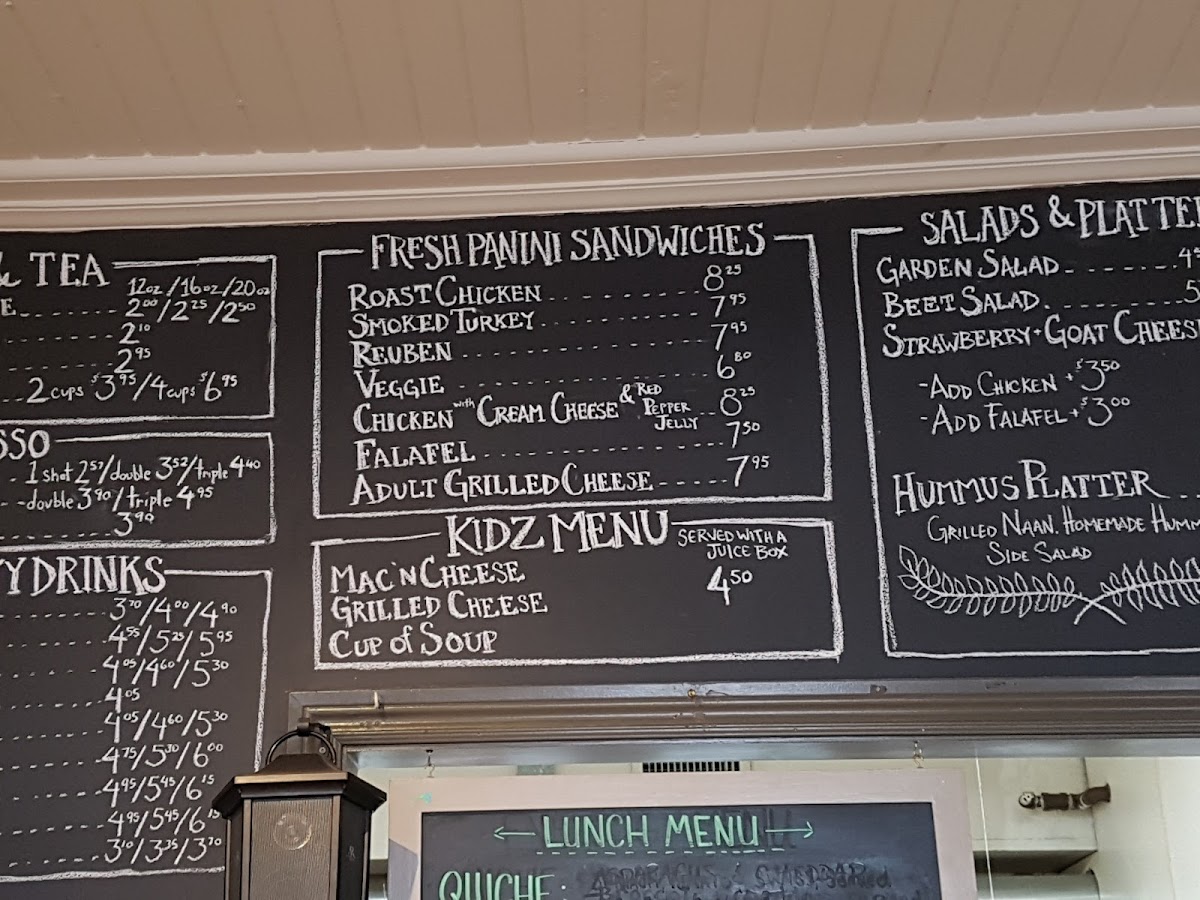 & TEA
12oz/16oz/20oz
2.00/2.25/2.50
2.10
2.95
2 cups $3.95/4 cups $6.95
1 shot 2.52/double 3.52/triple 4.40
double 3.90/triple 4.95
3.90
DRINKS
3.70/4.00/4.90
4.55/5.25/5.95
4.05/4.60/5.30
4.05
4.05/4.60/5.30
4.75/5.30/6.00
4.95/5.45/6.15
4.95/5.45/6.15
3.10/3.35/3.70
FRESH PANINI SANDWICHES
ROAST CHICKEN 8.25
SMOKED TURKEY 7.95
REUBEN 7.95
VEGGIE 6.80
CHICKEN with CREAM CHEESE & RED PEPPER JELLY 8.25
FALAFEL 7.50
ADULT GRILLED CHEESE 7.95
KIDZ MENU SERVED WITH A JUICE BOX
MAC 'N CHEESE 4.50
GRILLED CHEESE
CUP of SOUP
SALADS & PLATTE
GARDEN SALAD
BEET SALAD
STRAWBERRY + GOAT CHEES
-ADD CHICKEN + $3.50
-ADD FALAFEL + $3.00
HUMMUS PLATTER
GRILLED NAAN. HOMEMADE HUMM
SIDE SALAD
LUNCH MENU
QUICHE: